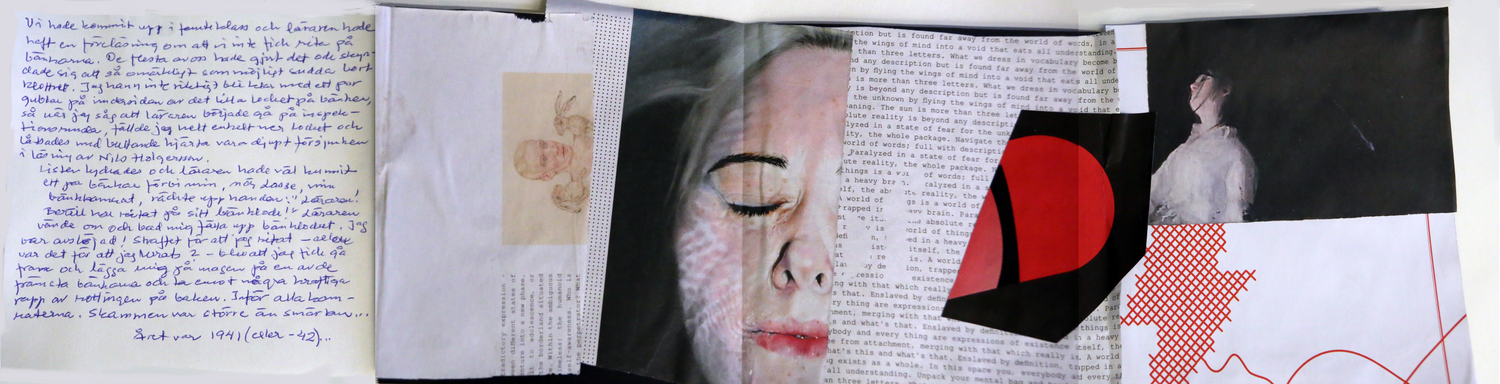 Vi hade kommit upp i fjärde klass och läraren hade
haft en föreläsning om att vi inte fick rita på
bänkarna. De flesta av oss hade gjort det och skyn-
dade sig att så omärkligt som möjligt sudda bort
klottret. Jag hann inte riktigt bli klar med ett par
gubbar på insidan av det lilla locket på bänken,
så när jag såg att läraren började gå på inspek-
tionsrunda, fällde jag helt enkelt ner locket och
låtsades med bultande hjärta vara djupt försjunken
i läsning av Nils Holgersson.
Listen lyckades och läraren hade väl hunnit
ett par bänkar förbi min, när Lasse, min
bänkkamrat, räckte upp handen: "Läraren!
Bertil har ritat på sitt bänklock!" Läraren
vände om och bad mig fälla upp bänklocket. Jag
var avslöjad! Straffet för att jag ritat –
var det för att jag lurats? – blev att jag fick gå
fram och lägga mig på magen på en av de
främsta bänkarna och ta emot några kraftiga
rapp av rottingen på baken. Inför alla kam-
raterna. Skammen var större än smärtan...
Året var 1941 (eller -42)...
tradictory expression -
ween different states of
nture into a new phase.
it to adolescence, or
the borderland situated
Within the ambiguous
the humanoid
elf-awareness. Who is
e perpetrator? What
ption but is found far away from the world of words, in a
the wings of mind into a void that eats all understanding.
than three letters. What we dress in vocabulary become b
nd any description but is found far away from the world of
n by flying the wings of mind into a void that eats all unde
is more than three letters. What we dress in vocabulary be
y is beyond any description but is found far away from the
the unknown by flying the wings of mind into a void that e
aning. The sun is more than three let
lute reality is beyond any descripti
lyzed in a state of fear for the unk
ity, the whole package. Navigate the
world of words; full with description
Paralyzed in a state of fear for
ute reality, the whole package.
things is a of words; full
a heavy bra calyzed in a s
lf, the abs reality, the
world of gs is a world of
rapped i avy brain. Para
absolute re
world of things
ed in a heavy
itself, the
is. A world
on, trapped
existence
ng with that which really
s that. Enslaved by defin
ry thing are expressions
ment, merging with that
s and what's that. Enslaved by definition,
ybody and every thing are expressions of existence itself, the
e from attachment, merging with that which really is. A world
hat's this and what's that. Enslaved by definition, trapped in a
g exists as a whole. In this space you, everybody and every
all understanding. Unpack your mental bag and
n three letters